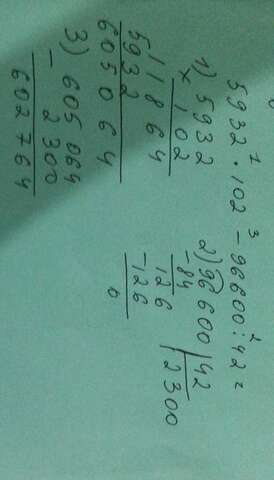 1 3 2
5932 · 102 - 96600 : 42 =
1) 5932
× 102
11864
5932
605064
2) 96600 | 42
-84 2300
126
-126
0
3) 605 064
- 2 300
602 764